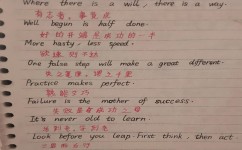 Where there is a will, there is a way.
有志者,事竟成
Well begun is half done.
好的开端是成功的一半
More hasty, less speed.
欲速则不达
One false step will make a great different.
失之毫厘,谬之千里
Practice makes perfect.
熟能生巧
Failure is the mother of success.
失败是成功之母
It's never old to learn.
活到老,学到老
Look before you leap. First think, then act
三思而